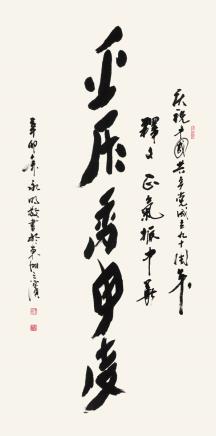 慶祝中國共產黨成立九十周年
釋文正氣振中華
正氣振中華
辛卯年永明敬書於東湖之濱